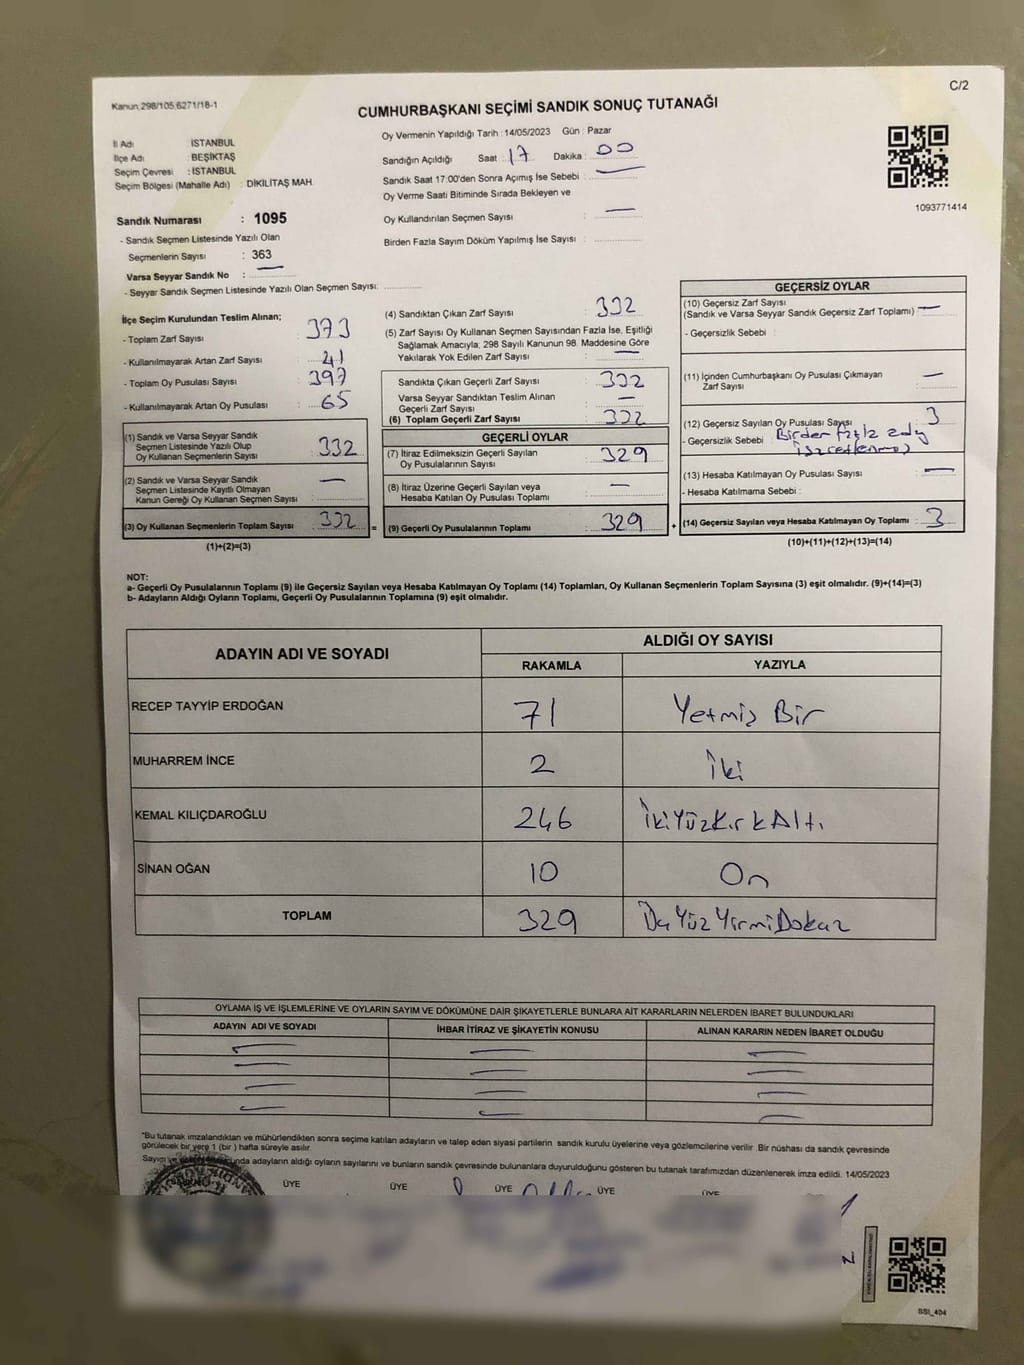 Kanun;298/105,6271/18-1
C/2
CUMHURBAŞKANI SEÇİMİ SANDIK SONUÇ TUTANAĞI
İl Adı : İSTANBUL
İlçe Adı : BEŞİKTAŞ
Seçim Çevresi : İSTANBUL
Seçim Bölgesi (Mahalle Adı) : DİKİLİTAŞ MAH.
Sandık Numarası : 1095
- Sandık Seçmen Listesinde Yazılı Olan
Seçmenlerin Sayısı : 363
Varsa Seyyar Sandık No : —
- Seyyar Sandık Seçmen Listesinde Yazılı Olan Seçmen Sayısı:
Oy Vermenin Yapıldığı Tarih : 14/05/2023 Gün : Pazar
Sandığın Açıldığı Saat 17 Dakika : 00
Sandık Saat 17:00'den Sonra Açımış İse Sebebi : —
Oy Verme Saati Bitiminde Sırada Bekleyen ve
Oy Kullandırılan Seçmen Sayısı : —
Birden Fazla Sayım Döküm Yapılmış İse Sayısı :
1093771414
İlçe Seçim Kurulundan Teslim Alınan;
- Toplam Zarf Sayısı : 373
- Kullanılmayarak Artan Zarf Sayısı : 41
- Toplam Oy Pusulası Sayısı : 397
- Kullanılmayarak Artan Oy Pusulası : 65
(1) Sandık ve Varsa Seyyar Sandık
Seçmen Listesinde Yazılı Olup
Oy Kullanan Seçmenlerin Sayısı : 332
(2) Sandık ve Varsa Seyyar Sandık
Seçmen Listesinde Kayıtlı Olmayan
Kanun Gereği Oy Kullanan Seçmen Sayısı : —
(3) Oy Kullanan Seçmenlerin Toplam Sayısı : 332 =
(1)+(2)=(3)
(4) Sandıktan Çıkan Zarf Sayısı : 332
(5) Zarf Sayısı Oy Kullanan Seçmen Sayısından Fazla İse, Eşitliği
Sağlamak Amacıyla; 298 Sayılı Kanunun 98. Maddesine Göre
Yakılarak Yok Edilen Zarf Sayısı : —
Sandıkta Çıkan Geçerli Zarf Sayısı : 332
Varsa Seyyar Sandıktan Teslim Alınan
Geçerli Zarf Sayısı : —
(6) Toplam Geçerli Zarf Sayısı : 332
GEÇERLİ OYLAR
(7) İtiraz Edilmeksizin Geçerli Sayılan
Oy Pusulalarının Sayısı : 329
(8) İtiraz Üzerine Geçerli Sayılan veya
Hesaba Katılan Oy Pusulası Toplamı : —
(9) Geçerli Oy Pusulalarının Toplamı : 329 +
GEÇERSİZ OYLAR
(10) Geçersiz Zarf Sayısı
(Sandık ve Varsa Seyyar Sandık Geçersiz Zarf Toplamı) : —
- Geçersizlik Sebebi :
(11) İçinden Cumhurbaşkanı Oy Pusulası Çıkmayan
Zarf Sayısı : —
(12) Geçersiz Sayılan Oy Pusulası Sayısı : 3
- Geçersizlik Sebebi : Birden
(13) Hesaba Katılmayan Oy Pusulası Sayısı : —
- Hesaba Katılmama Sebebi :
(14) Geçersiz Sayılan veya Hesaba Katılmayan Oy Toplamı : 3
(10)+(11)+(12)+(13)=(14)
NOT:
a- Geçerli Oy Pusulalarının Toplamı (9) ile Geçersiz Sayılan veya Hesaba Katılmayan Oy Toplamı (14) Toplamları, Oy Kullanan Seçmenlerin Toplam Sayısına (3) eşit olmalıdır. (9)+(14)=(3)
b- Adayların Aldığı Oyların Toplamı, Geçerli Oy Pusulalarının Toplamına (9) eşit olmalıdır.
ADAYIN ADI VE SOYADI
ALDIĞI OY SAYISI
RAKAMLA YAZIYLA
RECEP TAYYİP ERDOĞAN 71 Yetmiş Bir
MUHARREM İNCE 2 İki
KEMAL KILIÇDAROĞLU 246 İkiYüzKırkAltı
SİNAN OĞAN 10 On
TOPLAM 329
OYLAMA İŞ VE İŞLEMLERİNE VE OYLARIN SAYIM VE DÖKÜMÜNE DAİR ŞİKAYETLERLE BUNLARA AİT KARARLARIN NELERDEN İBARET BULUNDUKLARI
ADAYIN ADI VE SOYADI İHBAR İTİRAZ VE ŞİKAYETİN KONUSU ALINAN KARARIN NEDEN İBARET OLDUĞU
"Bu tutanak imzalandıktan ve mühürlendikten sonra seçime katılan adayların ve talep eden siyasi partilerin sandık kurulu üyelerine veya gözlemcilerine verilir. Bir nüshası da sandık çevresinde
görülecek bir yere 1 (bir) hafta süreyle asılır.
adayların aldığı oyların sayılarını ve bunların sandık çevresinde bulunanlara duyurulduğunu gösteren bu tutanak tarafımızdan düzenlenerek imza edildi. 14/05/2023
ÜYE ÜYE ÜYE ÜYE ÜYE
SSI_404